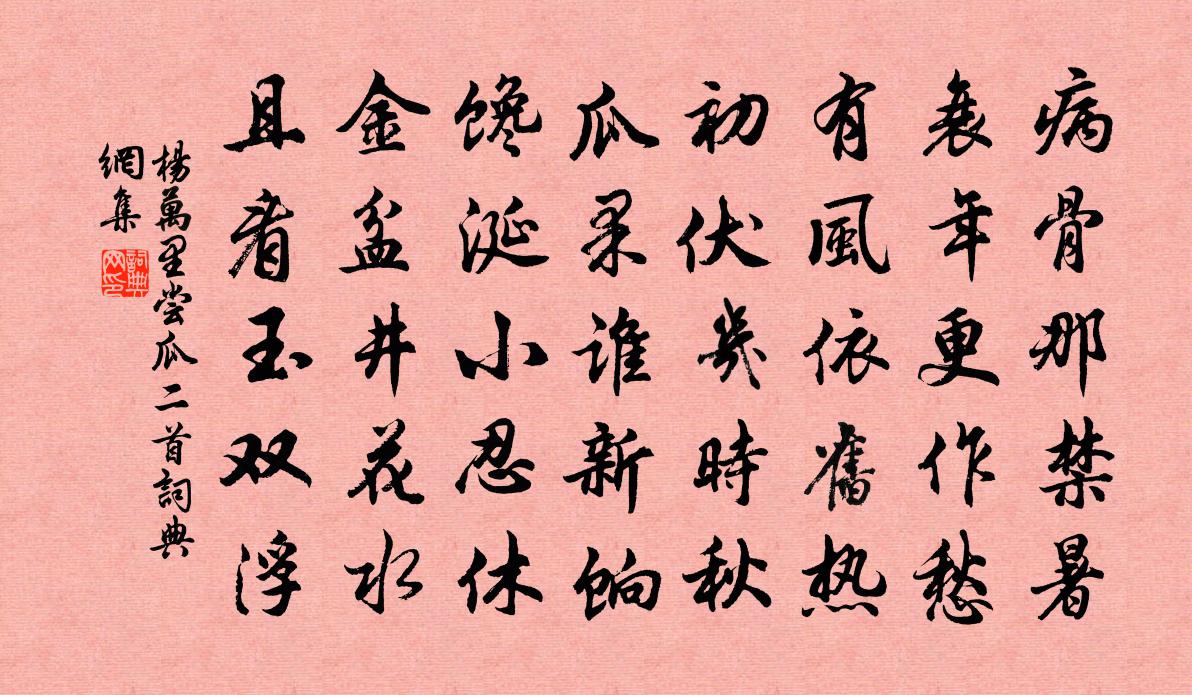 病骨那禁暑
衰年更作愁
有風依舊热
初伏幾時秋
瓜果誰新餉
馋涎小忍休
金盆井花水
且看玉双浮
楊萬里尝瓜二首詞典
網集
詞典
网印